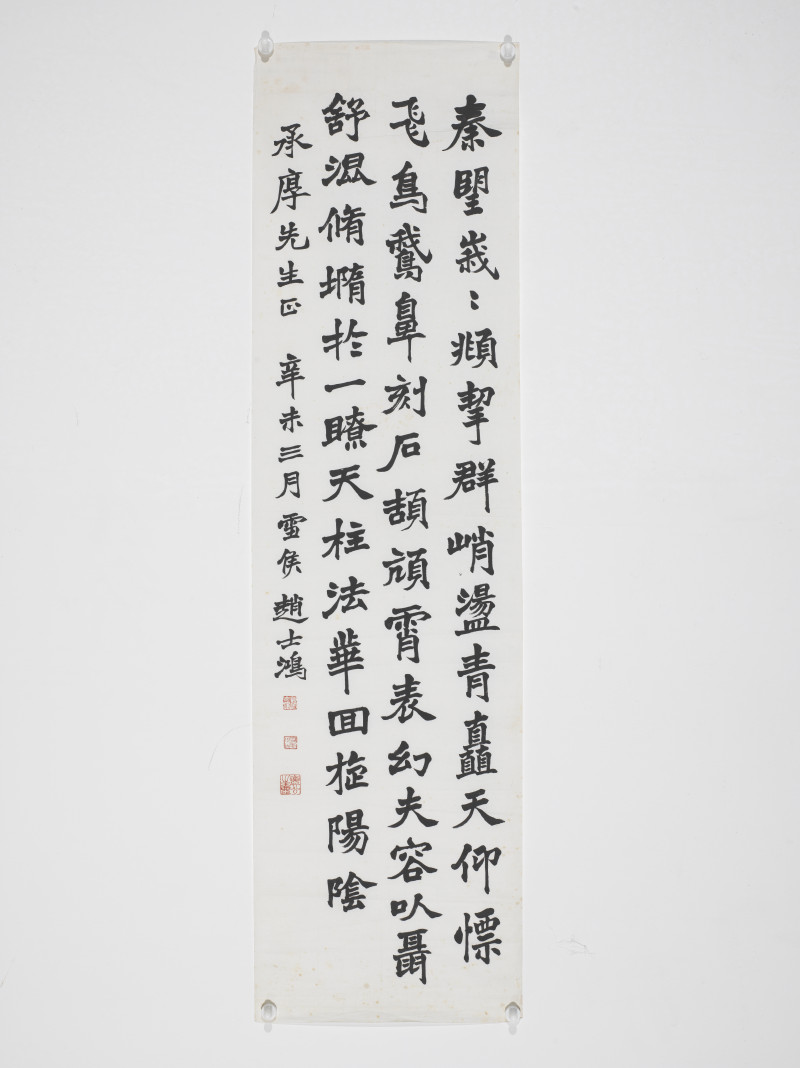 秦望峩〻頫挈群峭盪青矗天仰慓
飛鳥鵞鼻刻石頡頏霄表幻夫容㕥聶
舒混脩墮於一瞭天柱法華回旋陽陰
承厚先生正 辛未三月雪侯趙士鴻